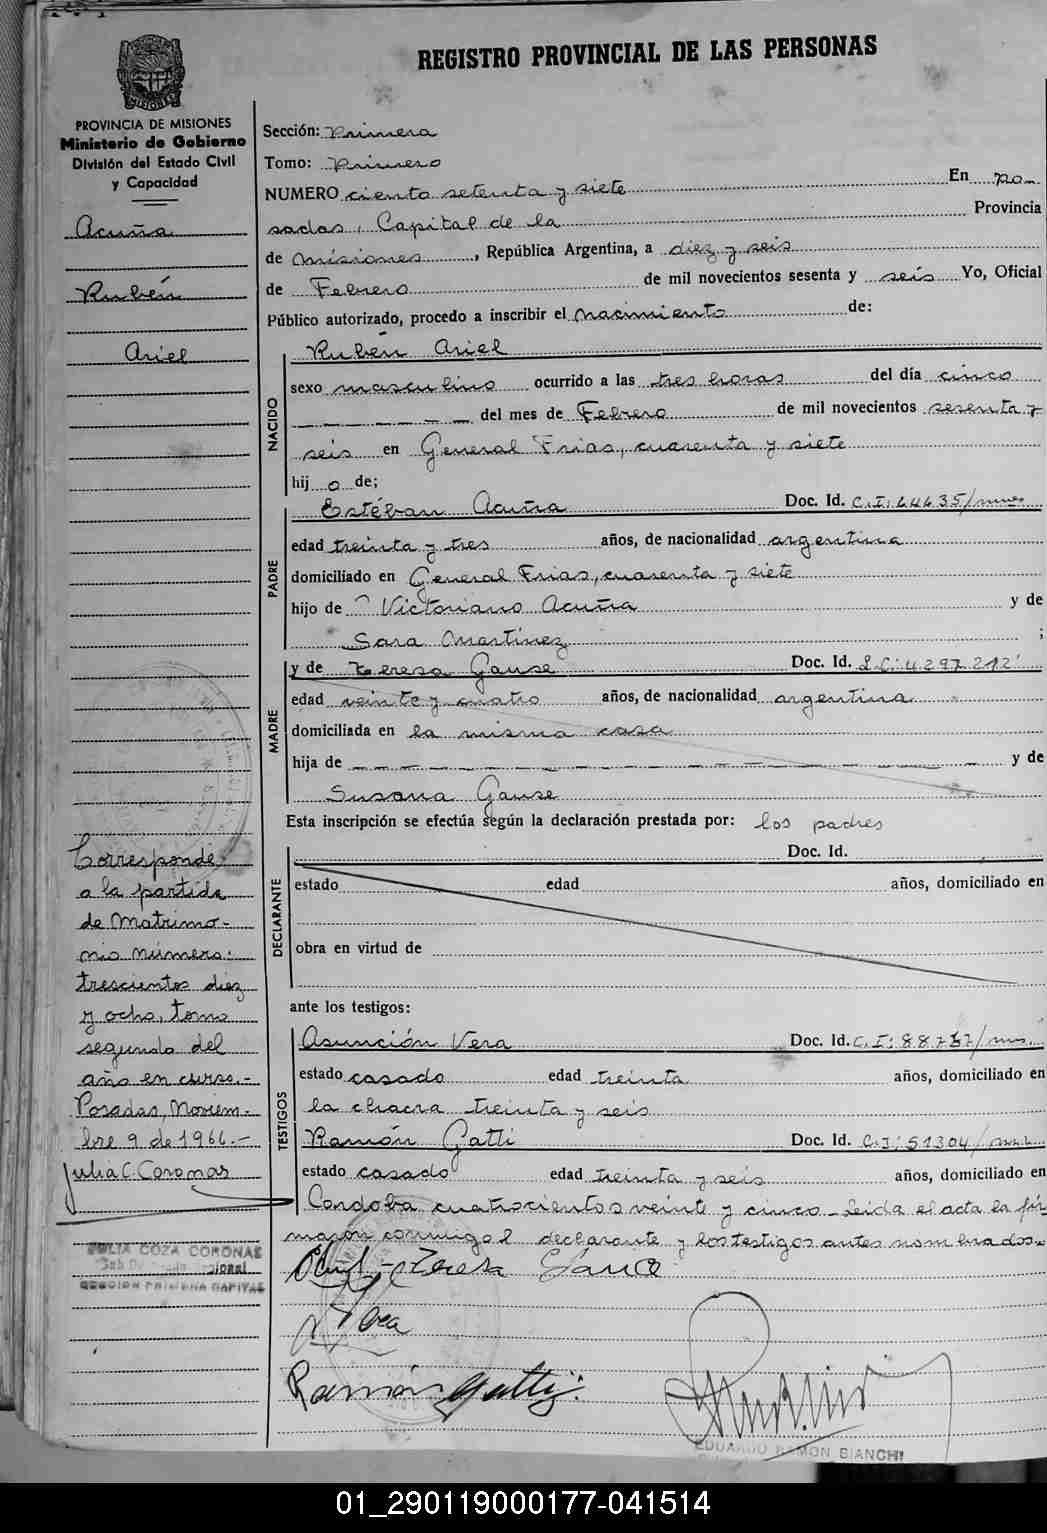 REGISTRO PROVINCIAL DE LAS PERSONAS
MISIONES
PROVINCIA DE MISIONES
Ministerio de Gobierno
División del Estado Civil
y Capacidad
Acuña
Rubén
Ariel
Sección: Primera
Tomo: Primero
NUMERO ciento setenta y siete En Po-
sadas, Capital de la Provincia
de Misiones, República Argentina, a diez y seis
de Febrero de mil novecientos sesenta y seis Yo, Oficial
Público autorizado, procedo a inscribir el nacimiento de:
NACIDO
Rubén Ariel
sexo masculino ocurrido a las tres horas del día cinco
del mes de Febrero de mil novecientos sesenta y
seis en General Frias, cuarenta y siete
hij o de;
PADRE
Estéban Acuña Doc. Id. C.I: 64635/
edad treinta y tres años, de nacionalidad argentina
domiciliado en General Frias, cuarenta y siete
hijo de Victoriano Acuña y de
Sara Martinez ;
MADRE
y de Teresa Gause Doc. Id. L.C: 4.297.212
edad veinte y cuatro años, de nacionalidad argentina
domiciliada en la misma casa
hija de — — — — — — y de
Susana Gause
Esta inscripción se efectúa según la declaración prestada por: los padres
DECLARANTE
Doc. Id.
estado edad años, domiciliado en
obra en virtud de
ante los testigos:
TESTIGOS
Asunción Vera Doc. Id. C.I:
estado casado edad treinta años, domiciliado en
la chacra treinta y seis
Ramón Gatti Doc. Id. C.I: 51304/
estado casado edad treinta y seis años, domiciliado en
Cordoba cuatrocientos veinte y cinco - Leida el acta la fir-
maron conmigo l declarante y los testigos antes nombrados.
Corresponde
a la partida
de Matrimo-
nio número:
trescientos diez
y ocho, tomo
segundo del
año en curso.-
Posadas, Noviem-
bre 9 de 1966.-
Julia C. Coronas
JULIA COZA CORONAS
SECCION PRIMERA CAPITAL
Teresa
Vera
Ramón Gatti
EDUARDO RAMON BIANCHI
01_290119000177-041514